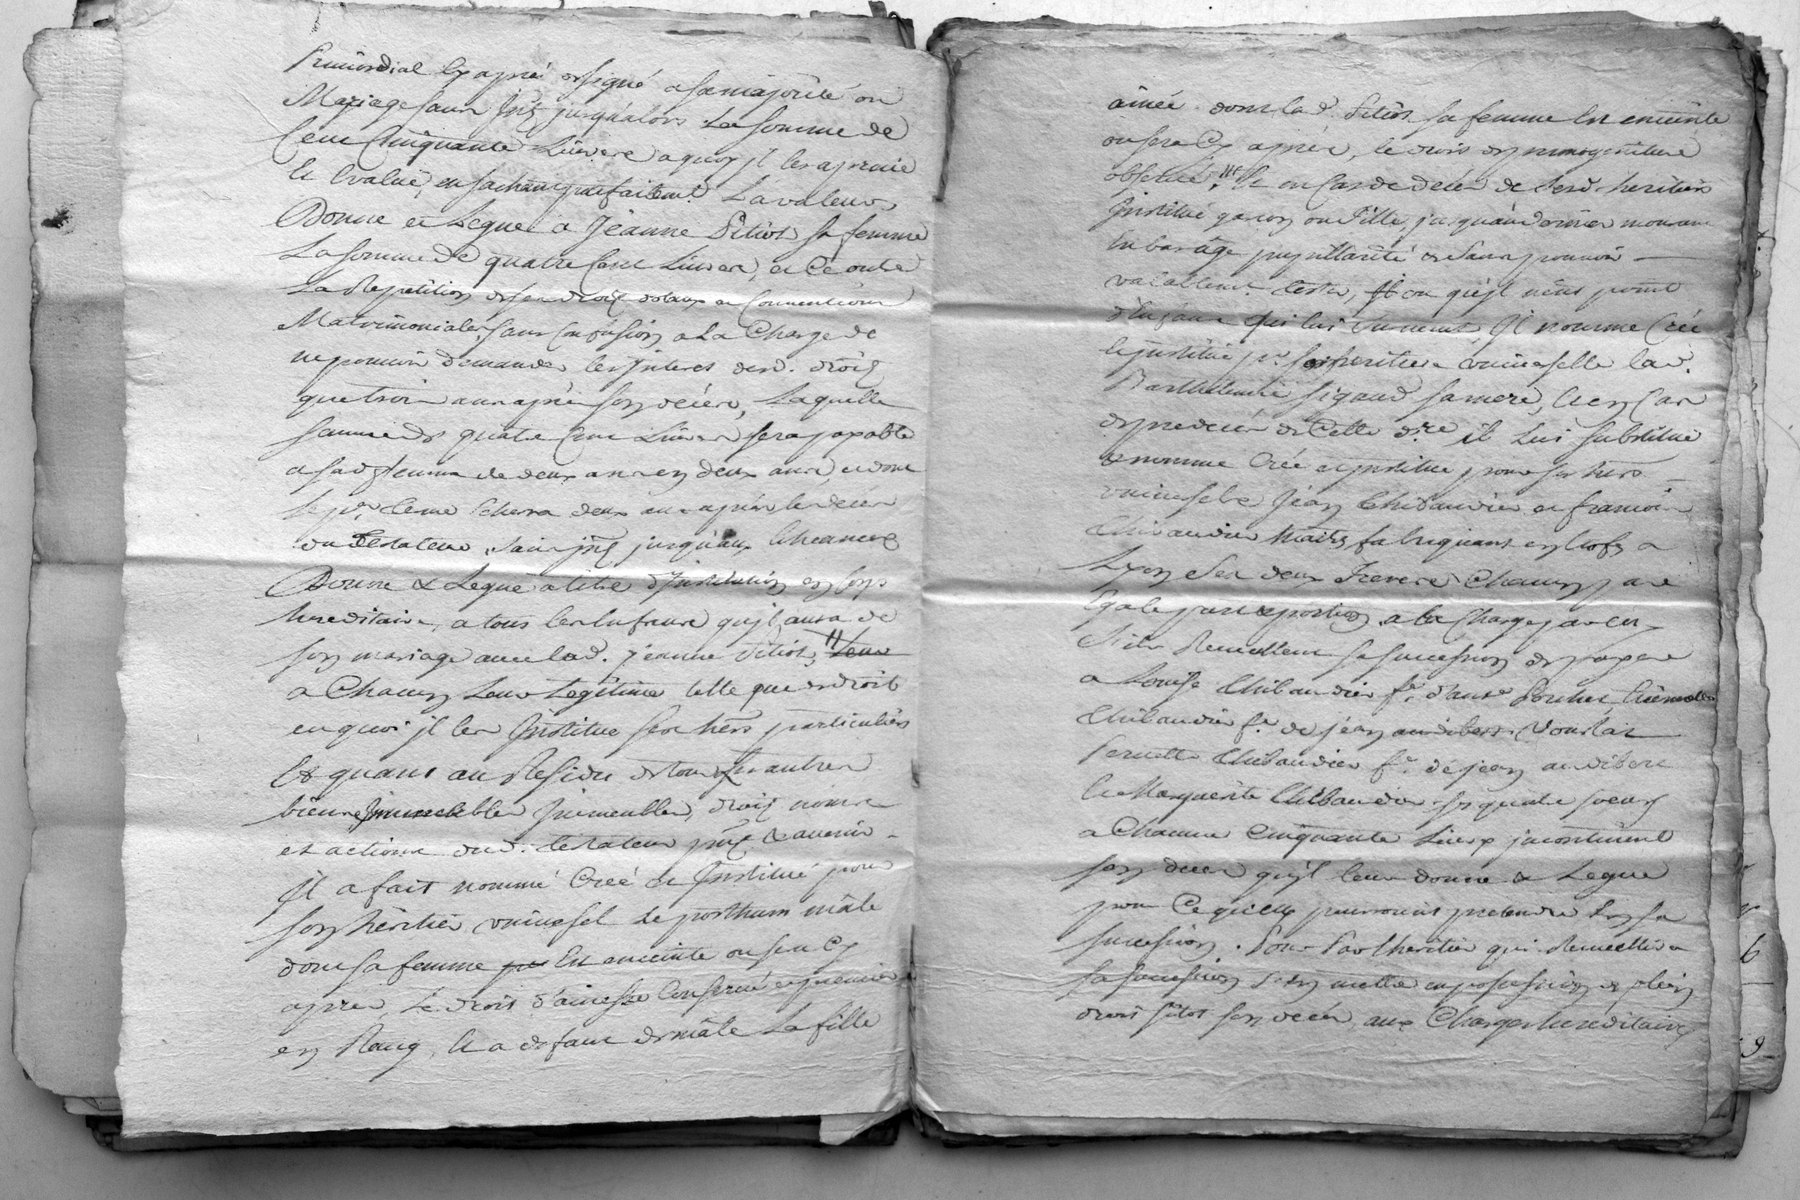 Primordial Cy apréz designé a sa majorité ou
Mariage sans jntz jusqu'alors La somme de
Cent Cinquante Livres a quoy jl les aprecie
Et Evalué, en sachant parfaitemt. La valeur,
Donne et Legue a Jeanne Pitiot sa femme
La somme de quatre Cent Livres, et Ce outre
La Repetition de ses droits dotaux et Conventions
Matrimoniales sans Confusion a La Charge de
ne pouvoir demander les jnterets desd. droits
que trois ans après son décés, Laquelle
somme de quatre Cent Livres sera payable
a sad. femme de deux ans en deux ans, et dont
le pr. terme Echerra deux ans après le décés
du Testateur, sans jntz jusqu'aux Echeances
Donne & Legue a titre d'Institution en
hereditaire, a tous les Enfans qu'jl aura de
son mariage avec lad. jeanne Pitiot,
a Chacun Leur Legitime telle que de droit
en quoi jl les Institue ses hers particuliers
Et quant au Residu de tous ses autres
biens jmmeubles, droits noms
et actions dud. testateur & avenir
Jl a fait nommé Créé et Institué pour
son héritier universel Le posthum mâle
dont sa femme Est enceinte ou sera Cy
aprez, Le droit d'ainesse Conservé
en Rang, Et a defaut de mâle La fille
ainée dont lad. Pitiot sa femme Est enceinte
ou sera Cy aprez, le droit de primogeniture
observé, Et en Cas de décés de sesd. heritiers
Institué garçon ou fille, jusqu'au dernier mourant
En bas age pupillarité & sans pouvoir
valablemt. tester, ou qu'jl n'eut point
d'Enfans qui lui Jl nomme Créé
& jnstitue pr. son heritiere universelle lad.
Barthelemie Sigaud sa mere, Et en Cas
de predécés de Cette dre. il Lui substitue
& nomme Créé et jnstitue pour ses hers
universels Jean Thibaudier et francois
Thibaudier Maitres fabriquants en Etofes a
Lyon ses deux Freres Chacun par
Egale part & portion, a la Charge par Eux
S'ils Recueillent sa succession de payer
a Louise Thibaudier fe. d'antne.
Thibaudier fe. de jean
Pernette Thibaudier fe. de jean
Et Marguerite Thibaudier ses quatre soeurs
a Chacune Cinquante Livres jncontinent
son décés qu'jl leur donne & Legue
pour Ce qu'elles pourroient pretendre En sa
succession. Pour Par l'heritier qui Recueillira
sa succession s'en mettre en possession de plein
droit sitot son décés, aux Charges hereditaires